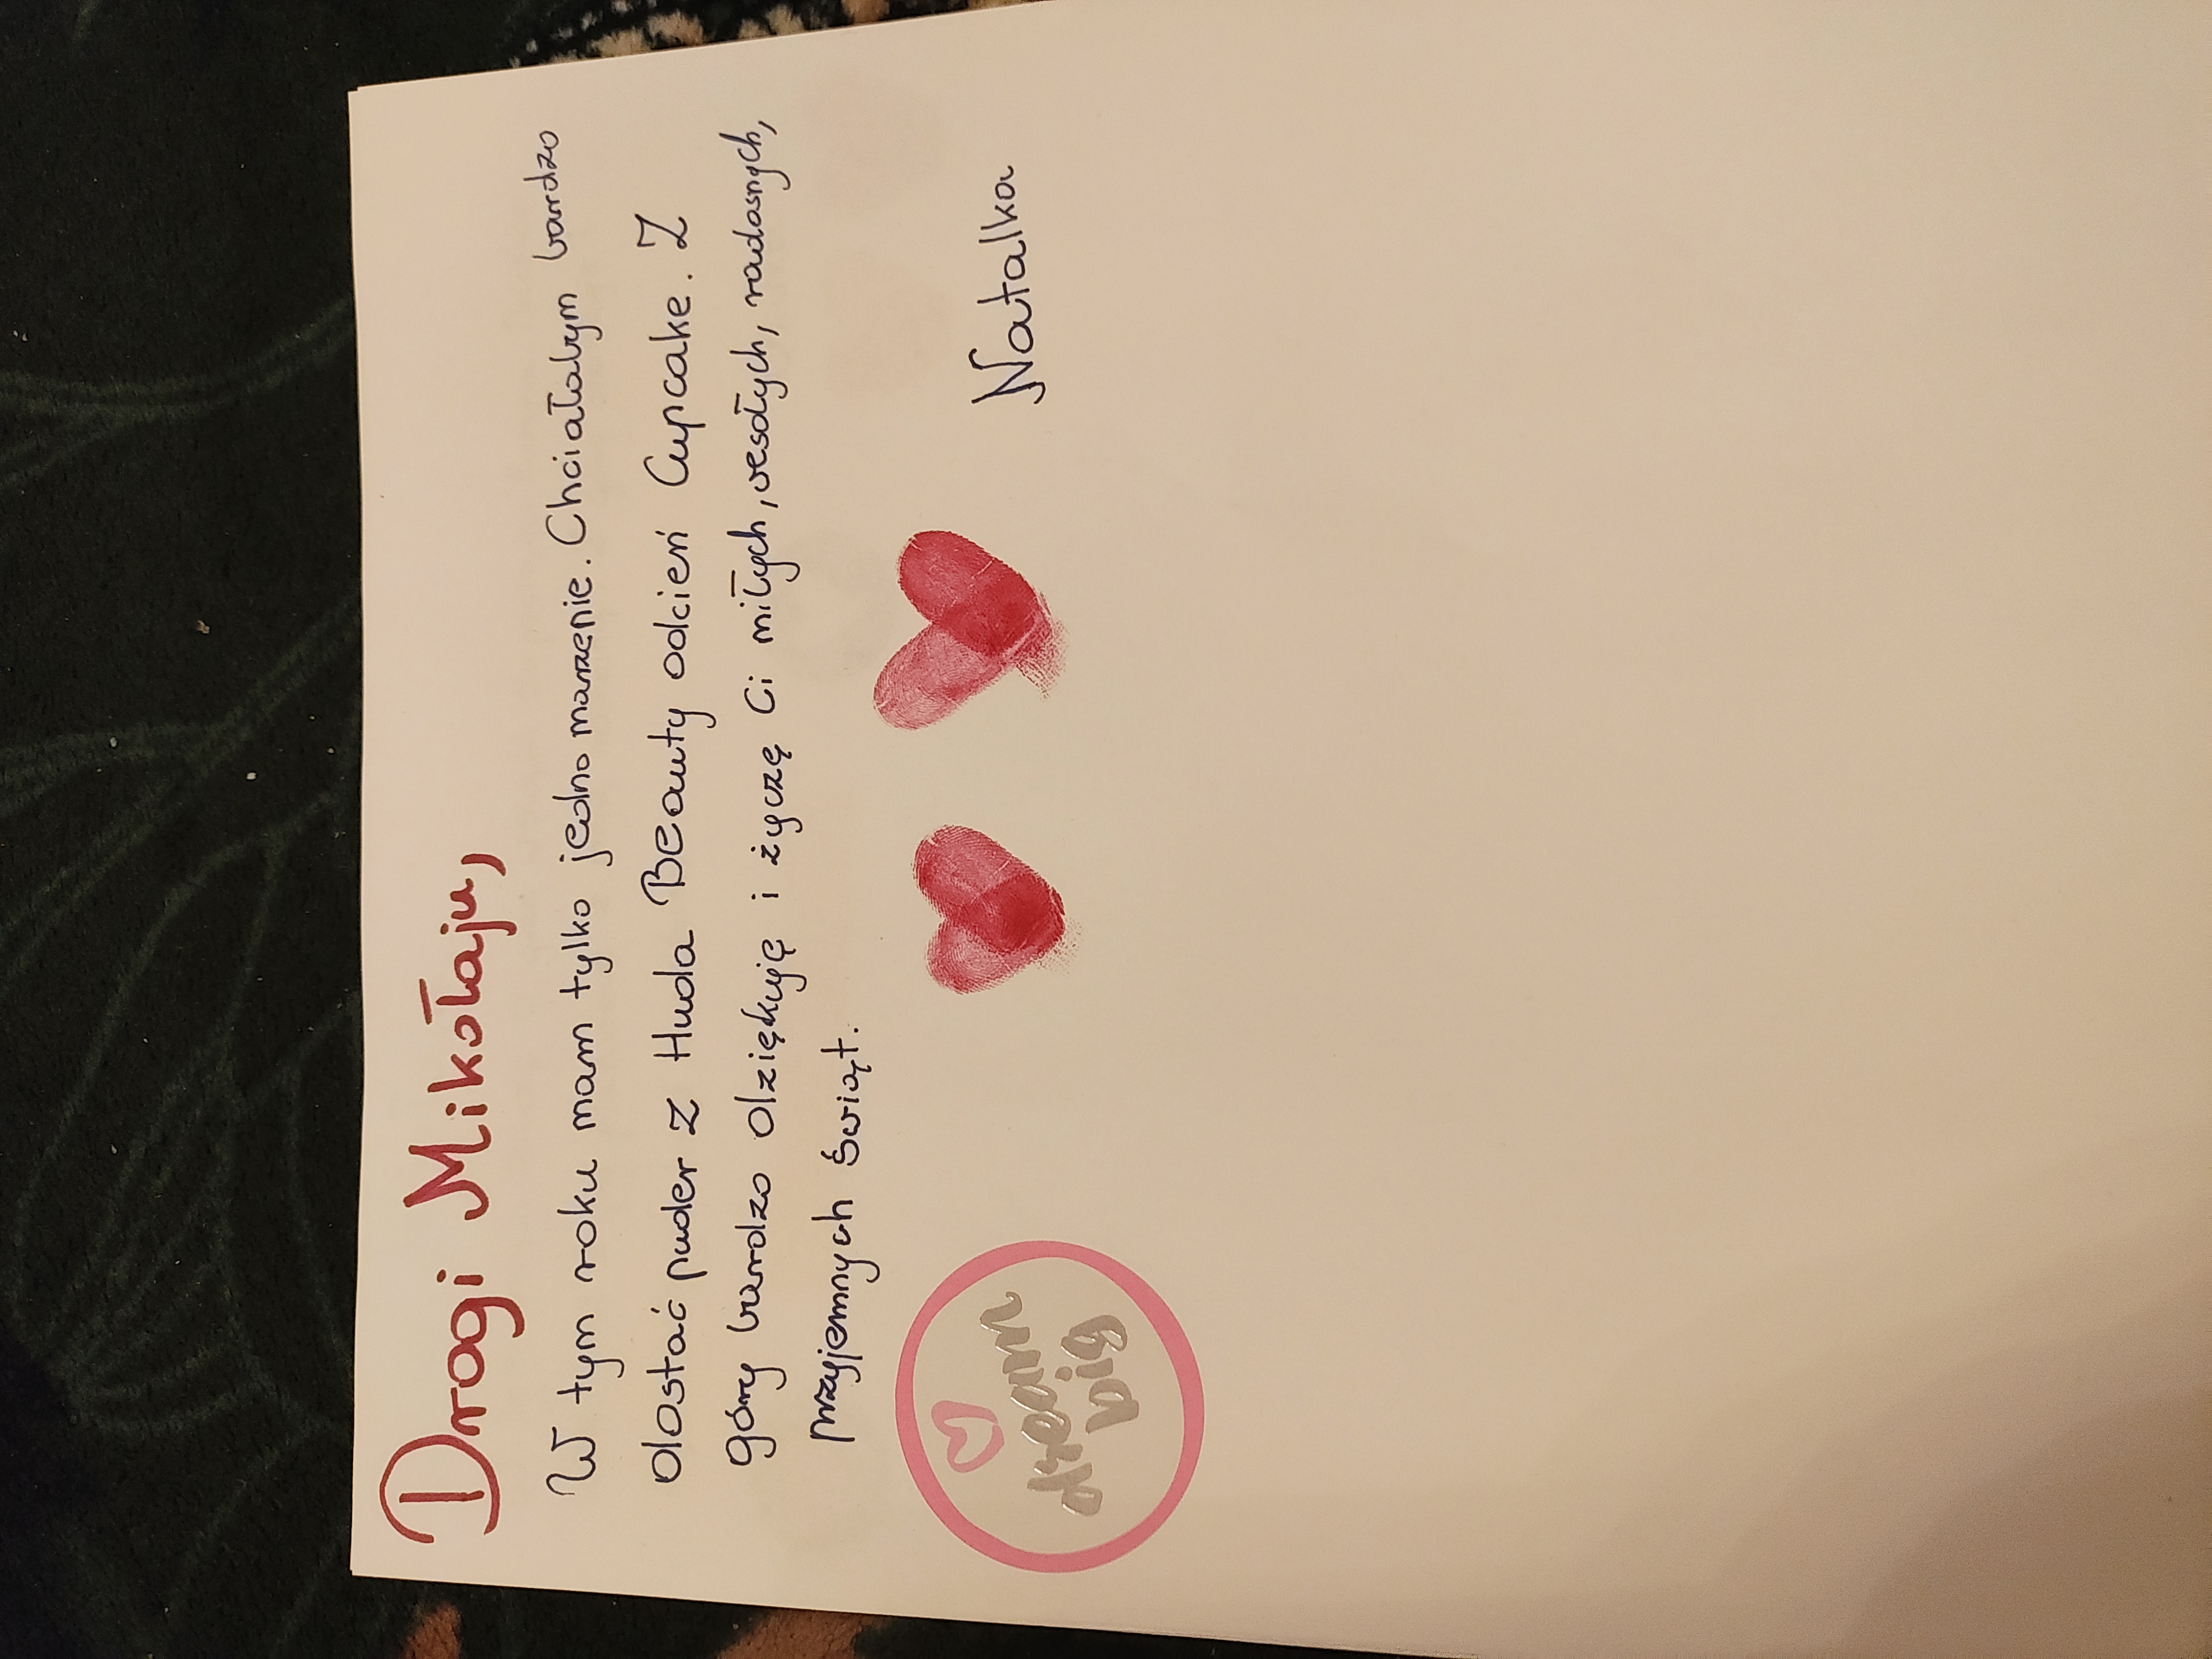 Drogi Mikołaju,
W tym roku mam tylko jedno marzenie. Chciałabym bardzo
dostać puder z Huda Beauty odcień Cupcake. Z
góry bardzo dziękuję i życzę Ci miłych, wesołych, radosnych,
przyjemnych Świąt.
Natalka
dream
big